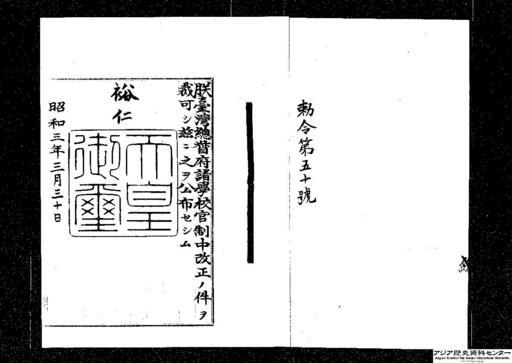 勅令第五十號
朕臺灣總督府諸學校官制中改正ノ件ヲ
裁可シ茲ニ之ヲ公布セシム
裕仁
天皇
御璽
昭和三年三月三十日
アジア歴史資料センター
Japan Center for Asian Historical Records